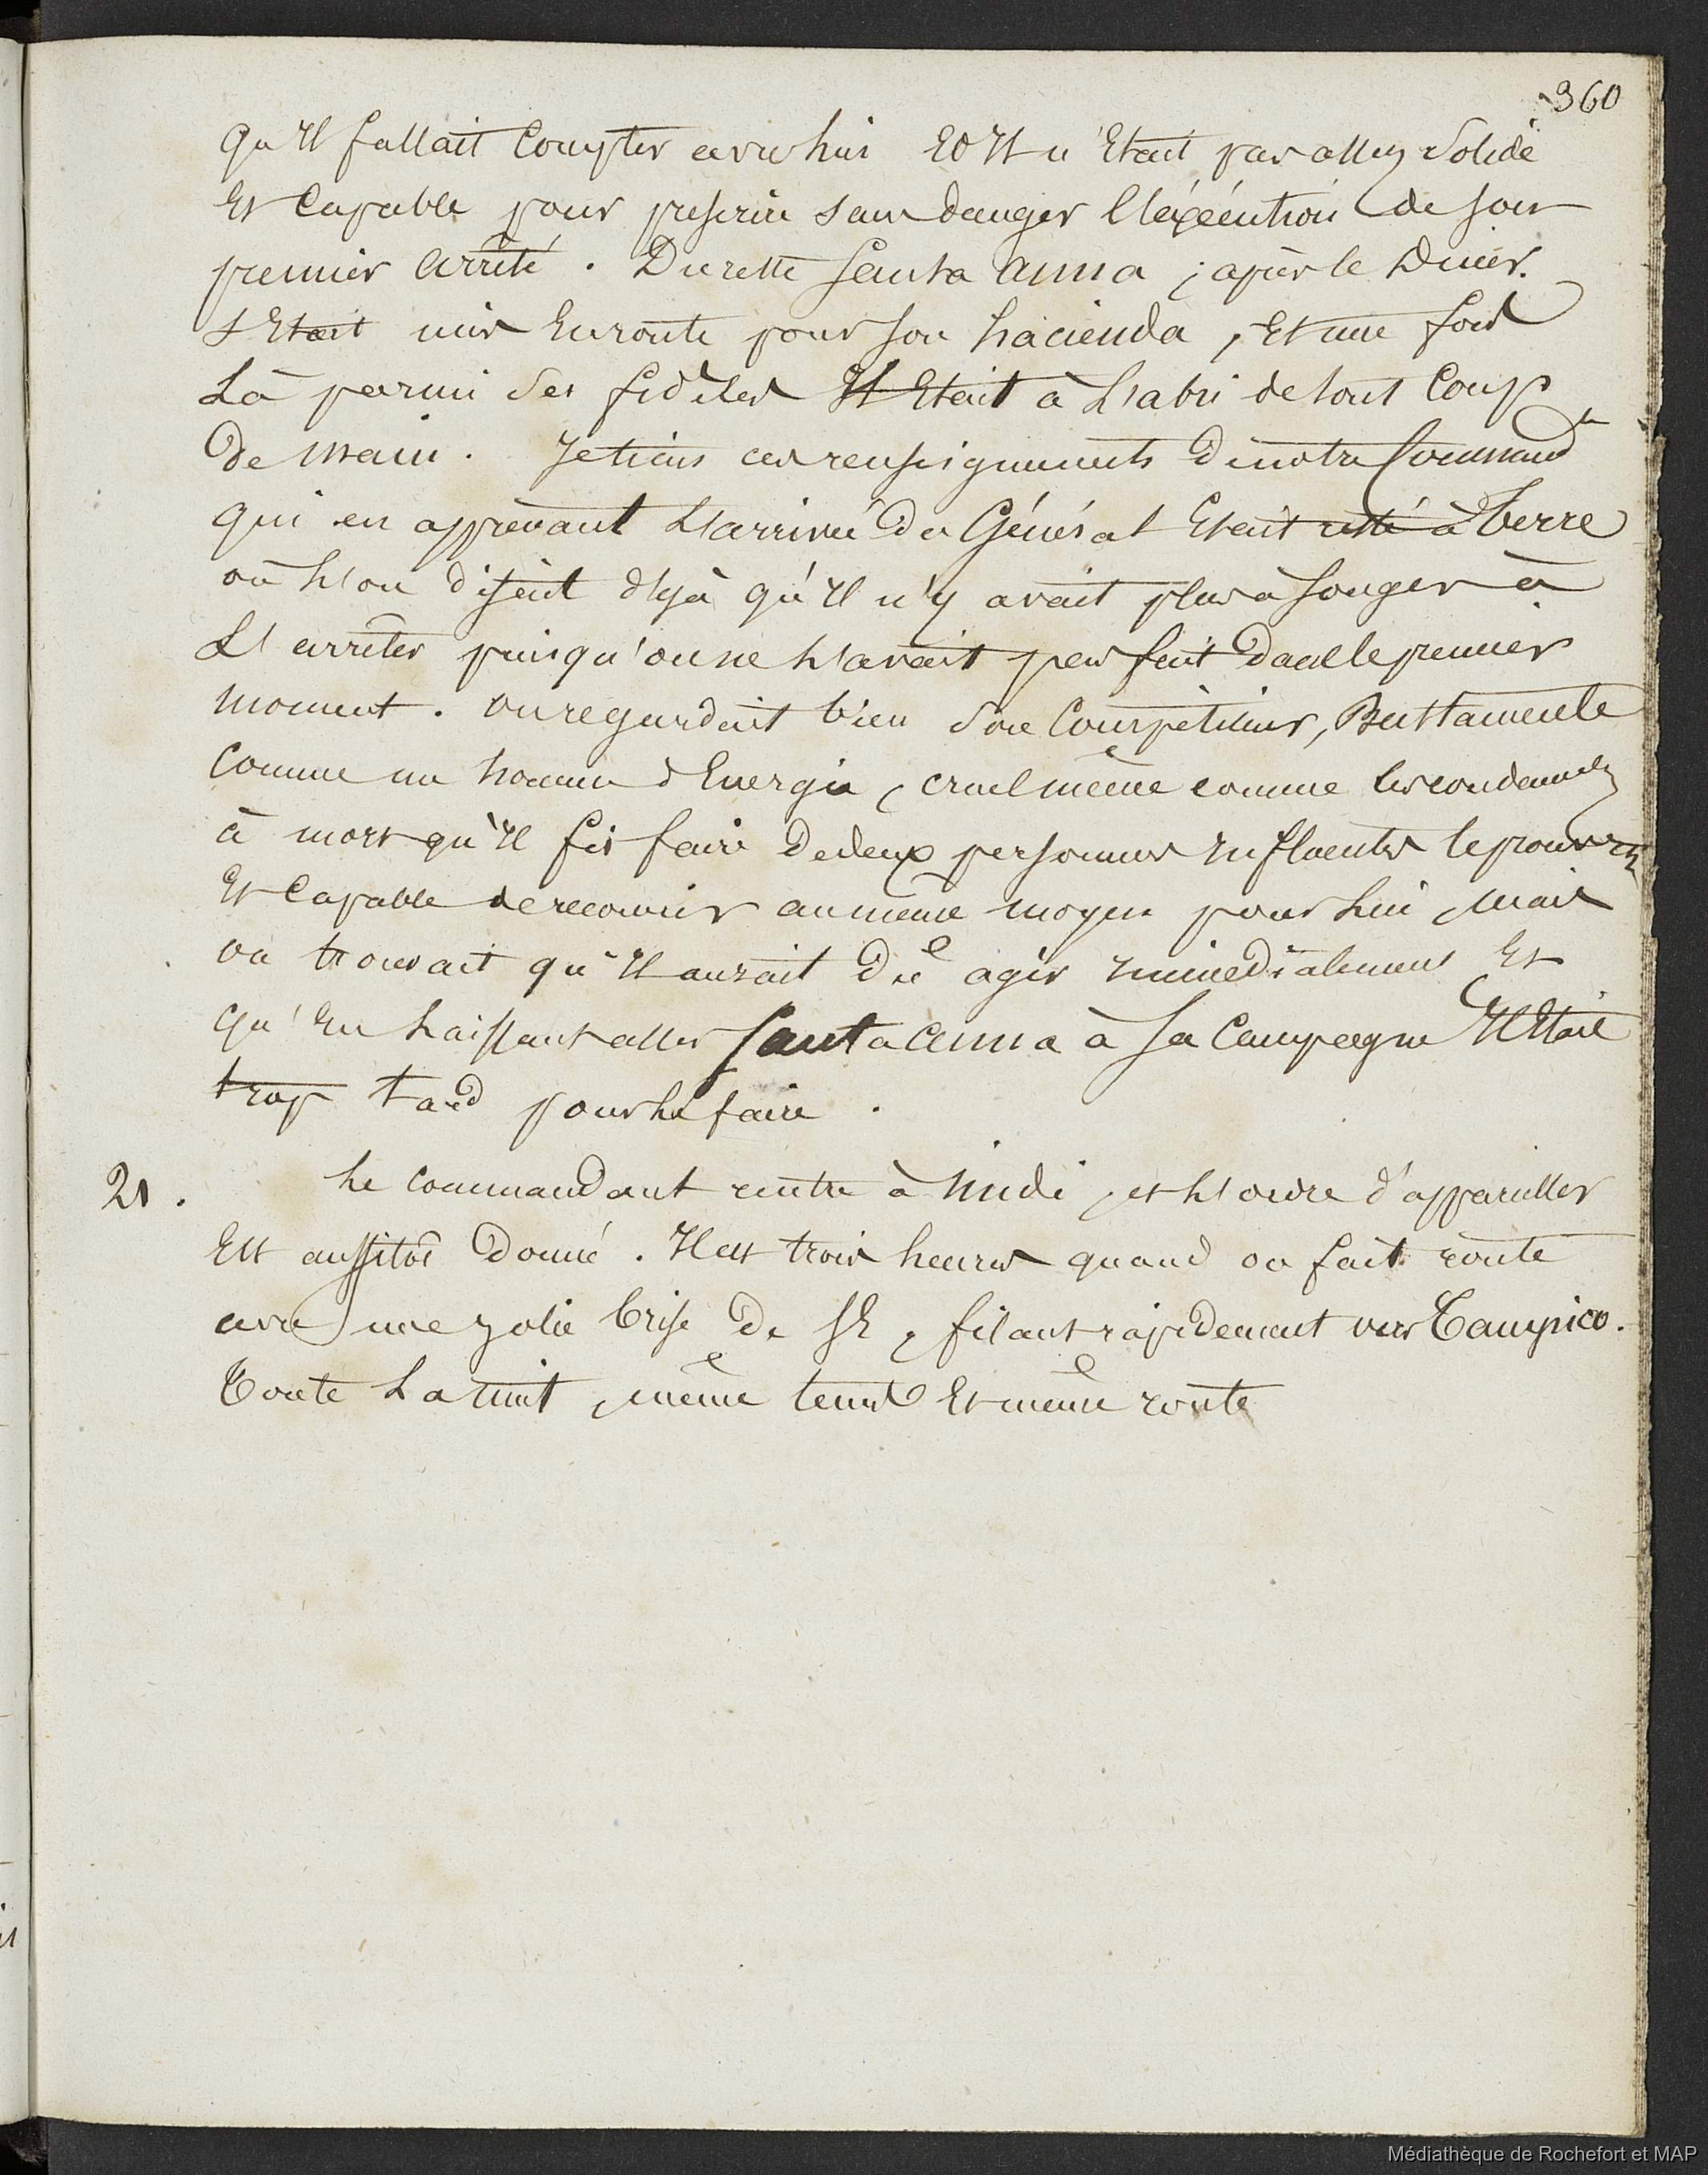 360
qu'Il fallait Compter avec lui Et Il n'Etait pas assez Solide
Et Capable pour prescrire sans danger l'éxécution de son
premier Arrêté. Du reste Santa Anna, après le Diner
s'Etait mis En route pour son hacienda, Et une fois
là parmi ses fidèles Il Etait à l'abri de tout Coup
De Main. Je tiens ces renseignements De notre Command.t
qui en apprenant l'arrivée Du Général Etait resté à Terre
où l'on disait déjà qu'Il n'y avait plus à songer à
l'arrêter puisqu'on ne l'avait pas fait Dans le premier
moment. on regardait bien son Compétiteur, Bustamente
Comme un homme d'Energie, cruel même comme les condamnés
à mort qu'Il fit faire De deux personnes Influentes le prouvent
Et Capable de recourir au même moyen pour lui, Mais
on trouvait qu'Il aurait Dû agir Immédiatement Et
qu'En laissant aller Santa Anna à sa Campagne Il Etait
trop tard pour le faire.
21. Le Commandant rentre à Midi, et l'ordre d'appareiller
Est aussitôt Donné. Il est trois heures quand on fait route
avec une jolie brise De SE, filant rapidement vers Tampico.
Toute la nuit, même tems Et même route
Médiathèque de Rochefort et MAP